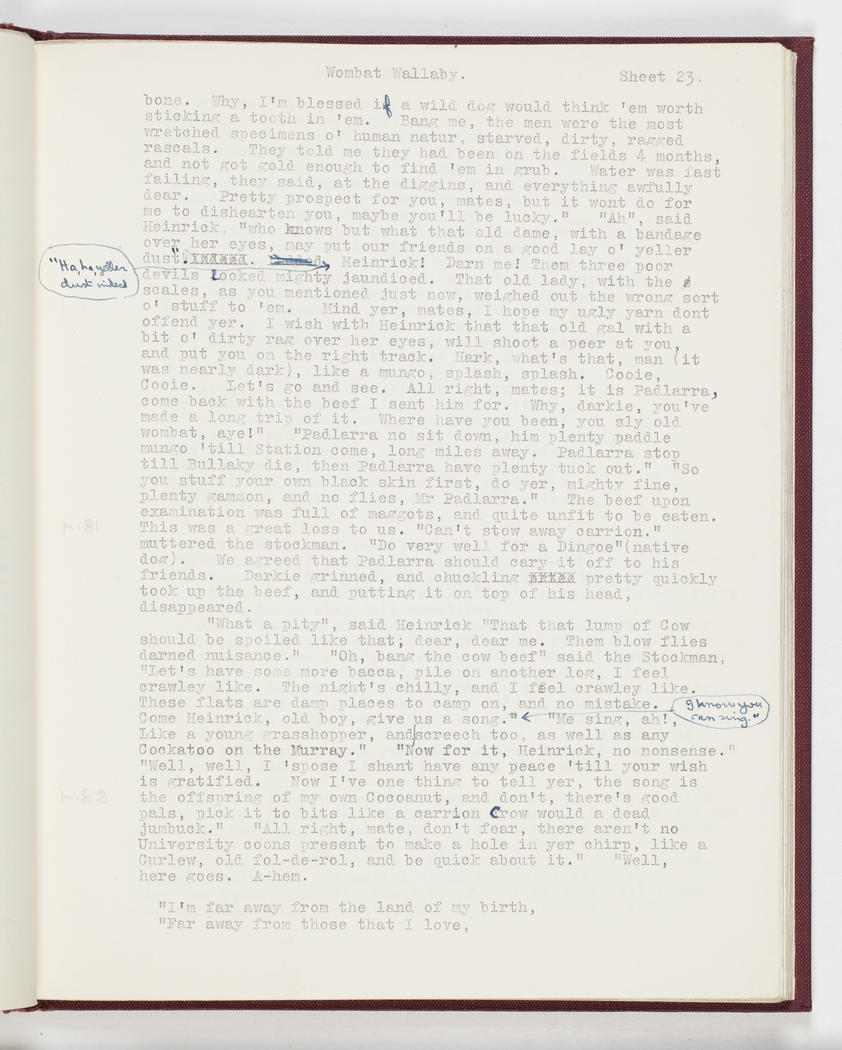 Wombat Wallaby. Sheet 23.
bone. Why, I'm blessed if a wild dog would think 'em worth
sticking a tooth in 'em. Bang me, the men were the most
wretched specimens o' human natur, starved, dirty, ragged
rascals. They told me they had been on the fields 4 months,
and not got gold enough to find 'em in grub. Water was fast
failing, they said, at the diggins, and everything awfully
dear. Pretty prospect for you, mates, but it wont do for
me to dishearten you, maybe you'll be lucky." "Ah", said
Heinrick, "who knows but what that old dame, with a bandage
over her eyes, may put our friends on a good lay o' yeller
dust". Heinrick! Darn me! Them three poor
"Ha, ha, yeller
dust indeed
devils looked mighty jaundiced. That old lady, with the
scales, as you mentioned just now, weighed out the wrong sort
o' stuff to 'em. Mind yer, mates, I hope my ugly yarn dont
offend yer. I wish with Heinrick that that old gal with a
bit o' dirty rag over her eyes, will shoot a peer at you,
and put you on the right track. Hark, what's that, man (it
was nearly dark), like a mungo, splash, splash. Cooie,
Cooie. Let's go and see. All right, mates; it is Padlarra,
come back with the beef I sent him for. Why, darkie, you've
made a long trip of it. Where have you been, you sly old
wombat, aye!" "Padlarra no sit down, him plenty paddle
mungo 'till Station come, long miles away. Padlarra stop
till Bullaky die, then Padlarra have plenty tuck out." "So
you stuff your own black skin first, do yer, mighty fine,
plenty gammon, and no flies, Mr Padlarra." The beef upon
examination was full of maggots, and quite unfit to be eaten.
p.81
This was a great loss to us. "Can't stow away carrion."
muttered the stockman. "Do very well for a Dingoe"(native
dog). We agreed that Padlarra should cary it off to his
friends. Darkie grinned, and chuckling pretty quickly
took up the beef, and putting it on top of his head,
disappeared.
"What a pity", said Heinrick "That that lump of Cow
should be spoiled like that; dear, dear me. Them blow flies
darned nuisance." "Oh, bang the cow beef" said the Stockman,
"Let's have some more bacca, pile on another log, I feel
crawley like. The night's chilly, and I feel crawley like.
These flats are damp places to camp on, and no mistake.
I know you
can sing."
Come Heinrick, old boy, give us a song." "Me sing, ah!,
Like a young grasshopper, and screech too, as well as any
Cockatoo on the Murray." "Now for it, Heinrick, no nonsense."
"Well, well, I 'spose I shant have any peace 'till your wish
is gratified. Now I've one thing to tell yer, the song is
p.82
the offspring of my own Cocoanut, and don't, there's good
pals, pick it to bits like a carrion Crow would a dead
jumbuck." "All right, mate, don't fear, there aren't no
University coons present to make a hole in yer chirp, like a
Curlew, old fol-de-rol, and be quick about it." "Well,
here goes. A-hem.
"I'm far away from the land of my birth,
"Far away from those that I love,